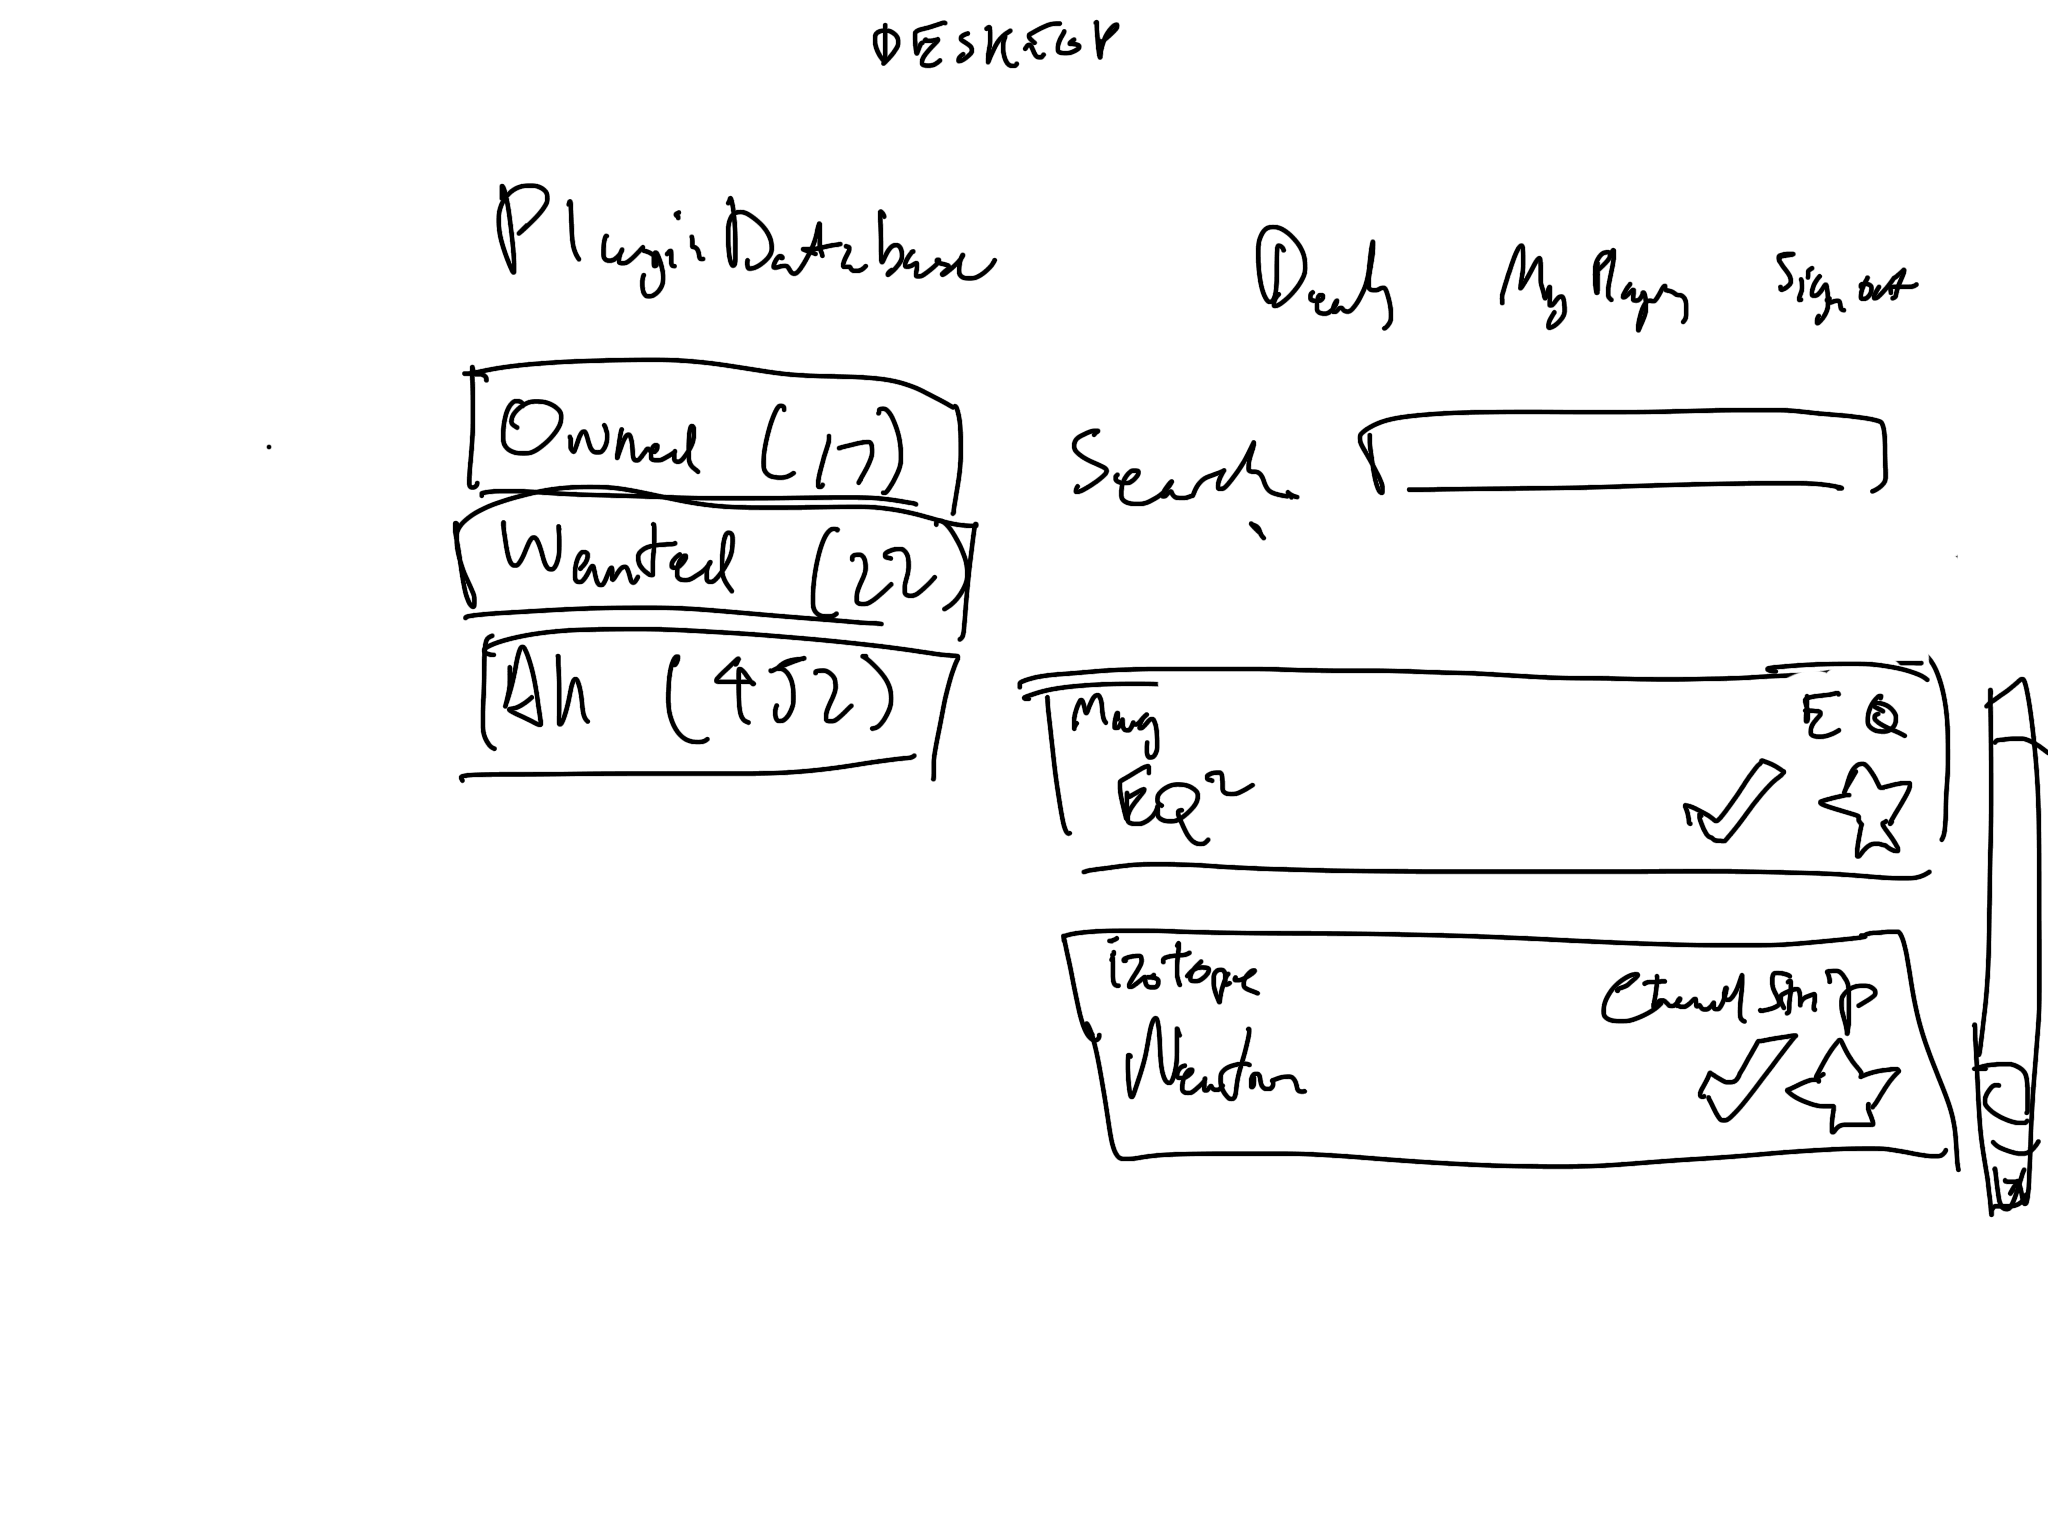 DESKTOP
Plugin Database
Deals My Plugins Sign out
Owned (17)
Search
Wanted (22)
All (452)
EQ
EQ²
izotope
Channel Strip
Newton